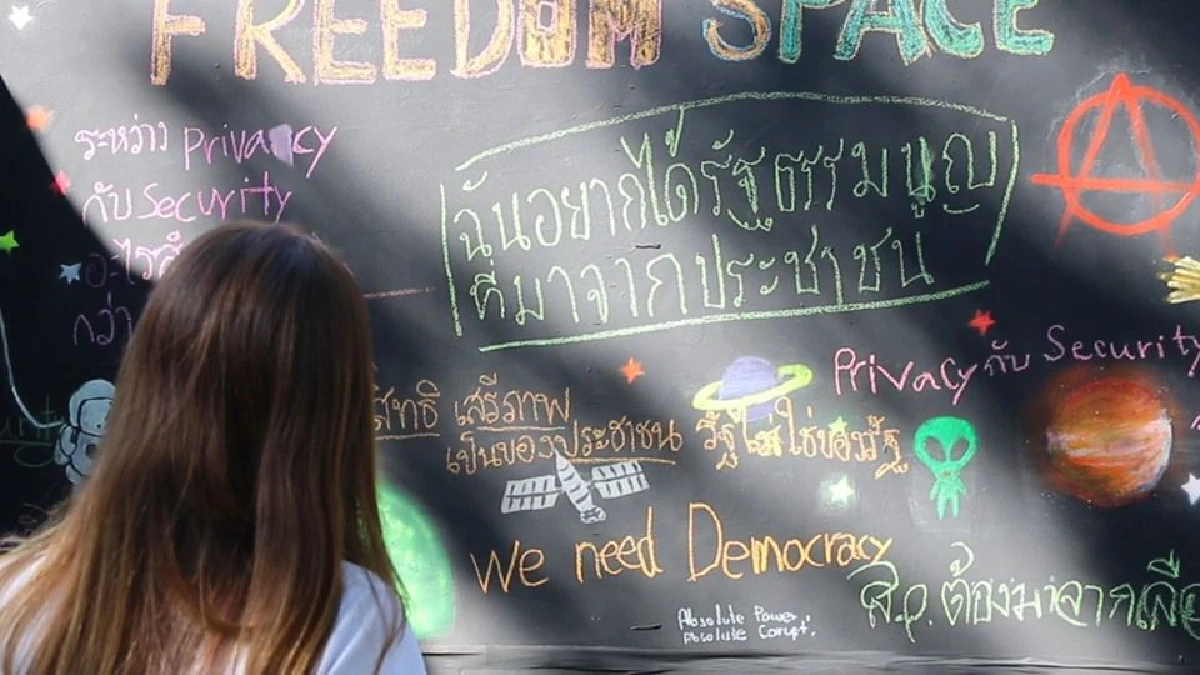 FREEDOM SPACE
ระหว่าง Privacy
กับ Security
กว่า
ฉันอยากได้รัฐธรรมนูญ
ที่มาจากประชาชน
Privacy กับ Security
สิทธิ เสรีภาพ
เป็นของประชาชน รัฐไม่ใช่ของรัฐ
We need Democracy
Absolute Power.
Absolute Corupt.
ส.ว. ต้องมาจากเลือ